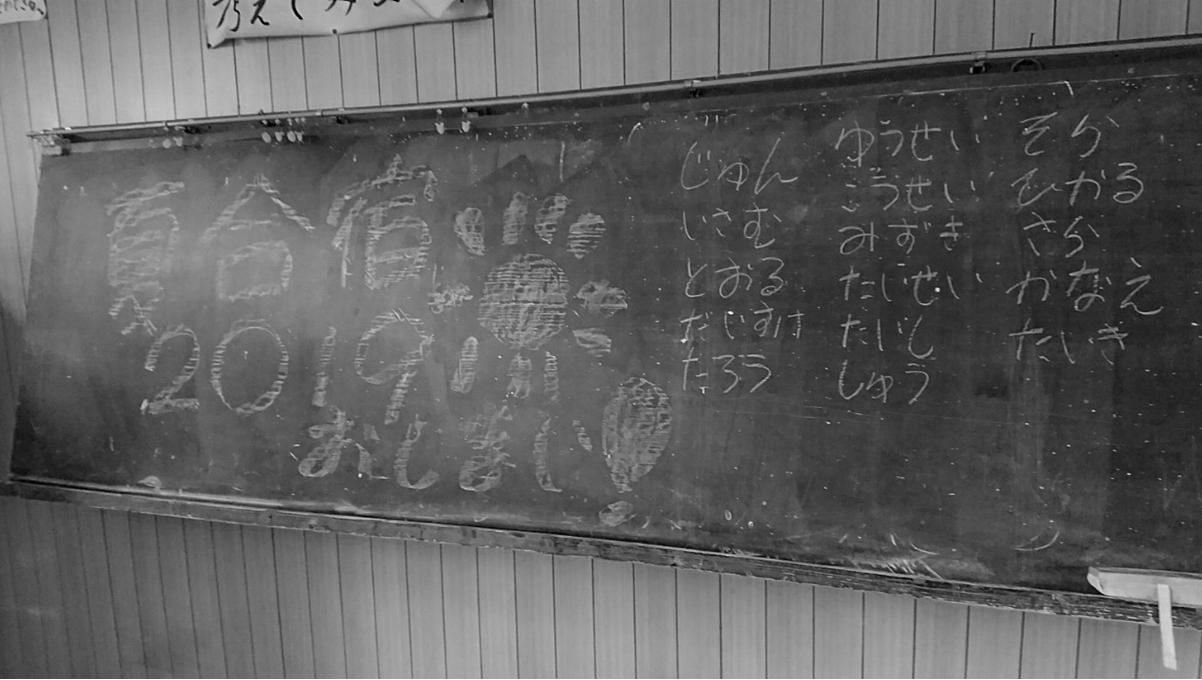 考えてみよう
夏合宿
2019
おしまい!
じゅん
いさむ
とおる
だいすけ
たろう
ゆうせい
こうせい
みずき
たいせい
たいし
しゅう
そら
ひかる
さら
かなえ
たいき